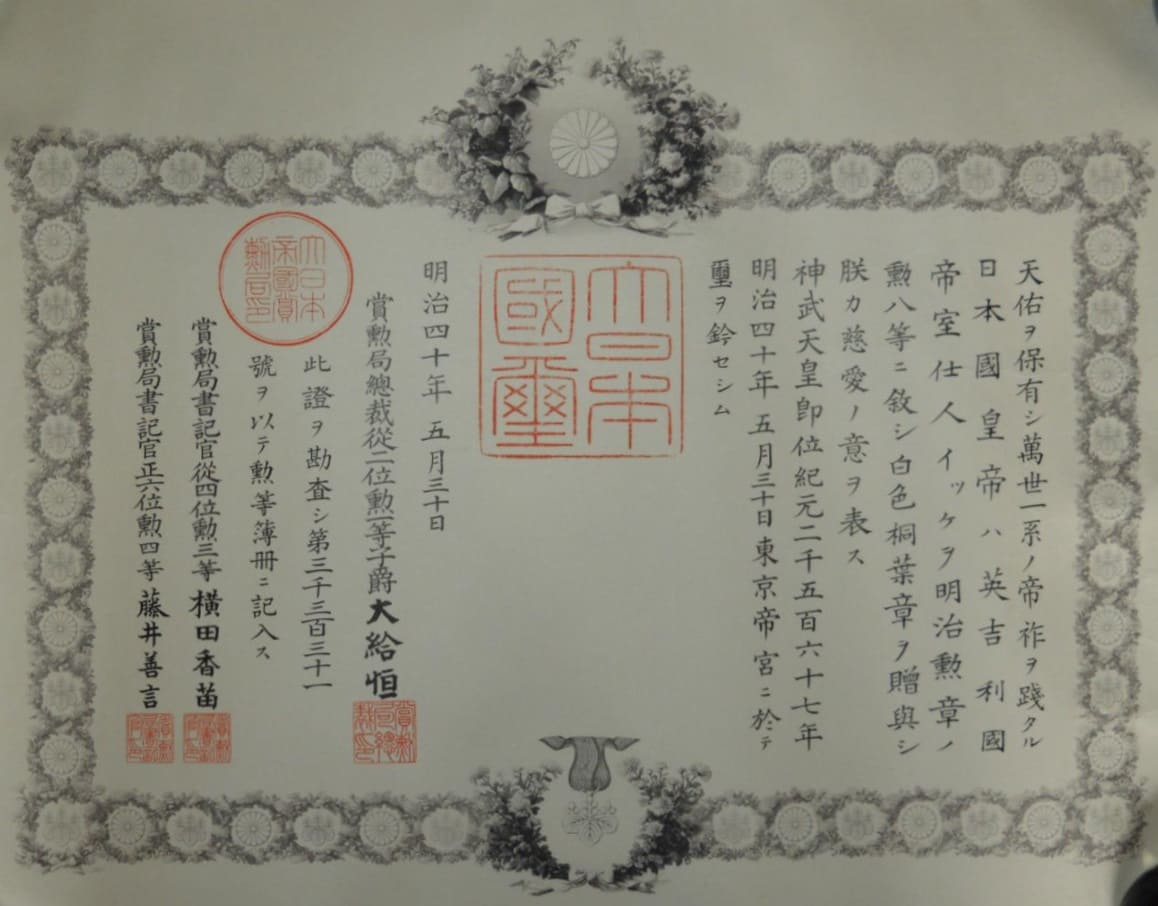 天佑ヲ保有シ萬世一系ノ帝祚ヲ踐タル
日本國皇帝ハ英吉利國
帝室仕人イッケヲ明治勲章ノ
勲八等ニ敘シ白色桐葉章ヲ贈與シ
朕カ慈愛ノ意ヲ表ス
神武天皇即位紀元二千五百六十七年
明治四十年五月三十日東京帝宮ニ於テ
璽ヲ鈐セシム
大日本
國璽
明治四十年五月三十日
賞勲局總裁從二位勲一等子爵大給恒
此證ヲ勘査シ第三千三百三十一
號ヲ以テ勲等簿册ニ記入ス
大日本
帝國賞
勲局印
賞勲局書記官從四位勲三等横田香苗
賞勲局書記官正六位勲四等藤井善言